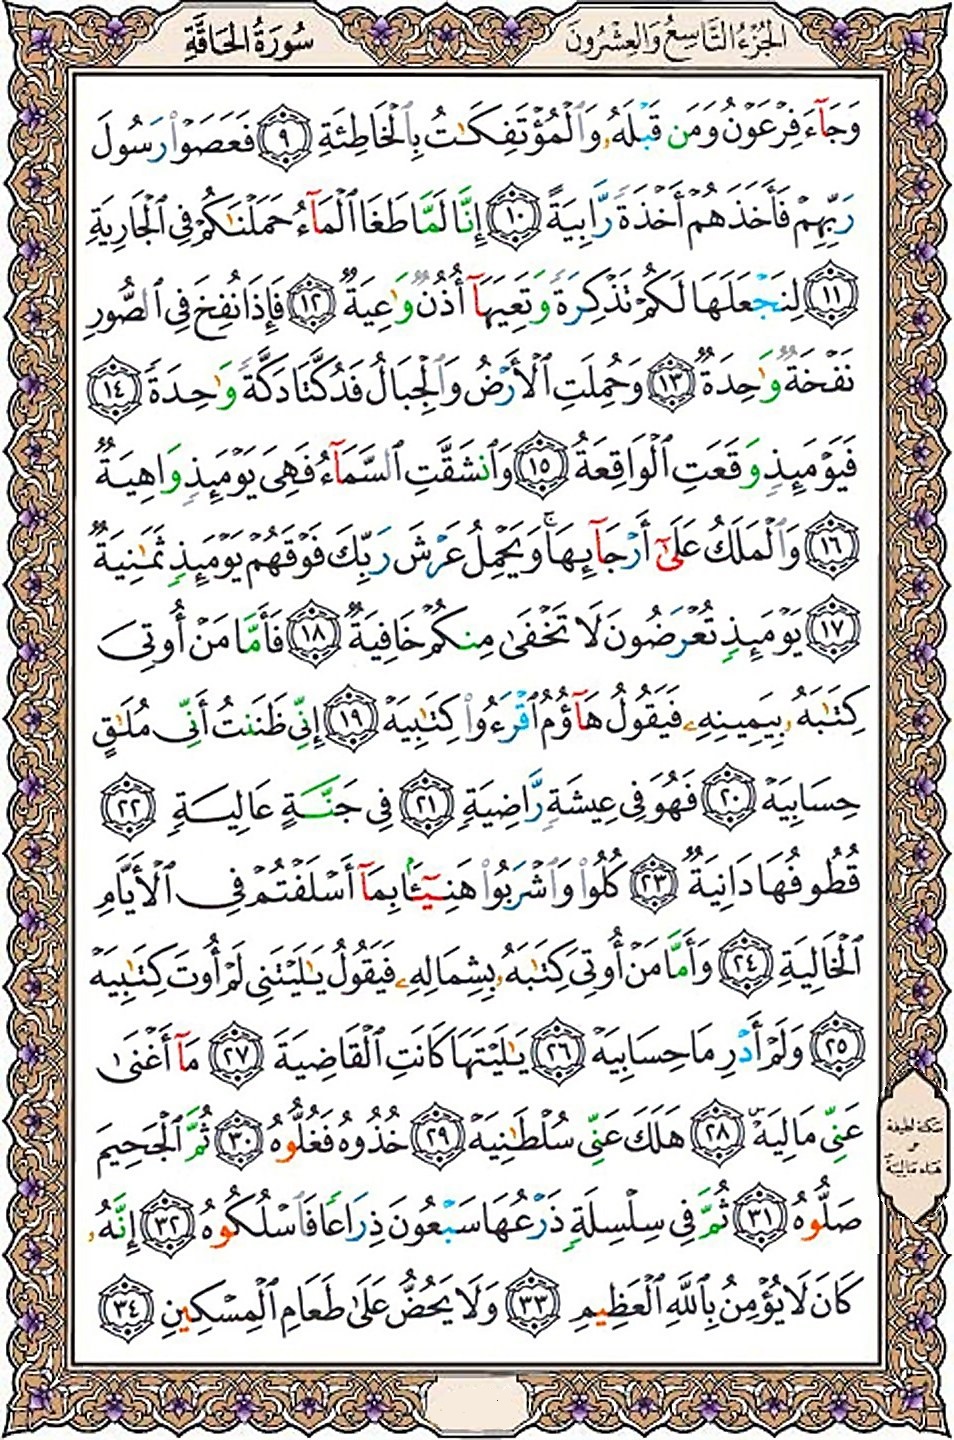 الجُزْءُ التَّاسِعُ وَالعِشْرُونَ
سُورَةُ الحَاقَّةِ
وَجَآءَ فِرۡعَوۡنُ وَمَن قَبۡلَهُۥ وَٱلۡمُؤۡتَفِكَٰتُ بِٱلۡخَاطِئَةِ ٩ فَعَصَوۡا۟ رَسُولَ
رَبِّهِمۡ فَأَخَذَهُمۡ أَخۡذَةٗ رَّابِيَةً ١٠ إِنَّا لَمَّا طَغَا ٱلۡمَآءُ حَمَلۡنَٰكُمۡ فِي ٱلۡجَارِيَةِ
١١ لِنَجۡعَلَهَا لَكُمۡ تَذۡكِرَةٗ وَتَعِيَهَآ أُذُنٞ وَٰعِيَةٞ ١٢ فَإِذَا نُفِخَ فِي ٱلصُّورِ
نَفۡخَةٞ وَٰحِدَةٞ ١٣ وَحُمِلَتِ ٱلۡأَرۡضُ وَٱلۡجِبَالُ فَدُكَّتَا دَكَّةٗ وَٰحِدَةٗ ١٤
فَيَوۡمَئِذٖ وَقَعَتِ ٱلۡوَاقِعَةُ ١٥ وَٱنشَقَّتِ ٱلسَّمَآءُ فَهِيَ يَوۡمَئِذٖ وَاهِيَةٞ
١٦ وَٱلۡمَلَكُ عَلَىٰٓ أَرۡجَآئِهَاۚ وَيَحۡمِلُ عَرۡشَ رَبِّكَ فَوۡقَهُمۡ يَوۡمَئِذٖ ثَمَٰنِيَةٞ
١٧ يَوۡمَئِذٖ تُعۡرَضُونَ لَا تَخۡفَىٰ مِنكُمۡ خَافِيَةٞ ١٨ فَأَمَّا مَنۡ أُوتِيَ
كِتَٰبَهُۥ بِيَمِينِهِۦ فَيَقُولُ هَآؤُمُ ٱقۡرَءُوا۟ كِتَٰبِيَهۡ ١٩ إِنِّي ظَنَنتُ أَنِّي مُلَٰقٍ
حِسَابِيَهۡ ٢٠ فَهُوَ فِي عِيشَةٖ رَّاضِيَةٖ ٢١ فِي جَنَّةٍ عَالِيَةٖ ٢٢
قُطُوفُهَا دَانِيَةٞ ٢٣ كُلُوا۟ وَٱشۡرَبُوا۟ هَنِيٓـَٔۢا بِمَآ أَسۡلَفۡتُمۡ فِي ٱلۡأَيَّامِ
ٱلۡخَالِيَةِ ٢٤ وَأَمَّا مَنۡ أُوتِيَ كِتَٰبَهُۥ بِشِمَالِهِۦ فَيَقُولُ يَٰلَيۡتَنِي لَمۡ أُوتَ كِتَٰبِيَهۡ
٢٥ وَلَمۡ أَدۡرِ مَا حِسَابِيَهۡ ٢٦ يَٰلَيۡتَهَا كَانَتِ ٱلۡقَاضِيَةَ ٢٧ مَآ أَغۡنَىٰ
عَنِّي مَالِيَهۡۜ ٢٨ هَلَكَ عَنِّي سُلۡطَٰنِيَهۡ ٢٩ خُذُوهُ فَغُلُّوهُ ٣٠ ثُمَّ ٱلۡجَحِيمَ
صَلُّوهُ ٣١ ثُمَّ فِي سِلۡسِلَةٖ ذَرۡعُهَا سَبۡعُونَ ذِرَاعٗا فَٱسۡلُكُوهُ ٣٢ إِنَّهُۥ
كَانَ لَا يُؤۡمِنُ بِٱللَّهِ ٱلۡعَظِيمِ ٣٣ وَلَا يَحُضُّ عَلَىٰ طَعَامِ ٱلۡمِسۡكِينِ ٣٤
سكتة لطيفة
هاء مالية